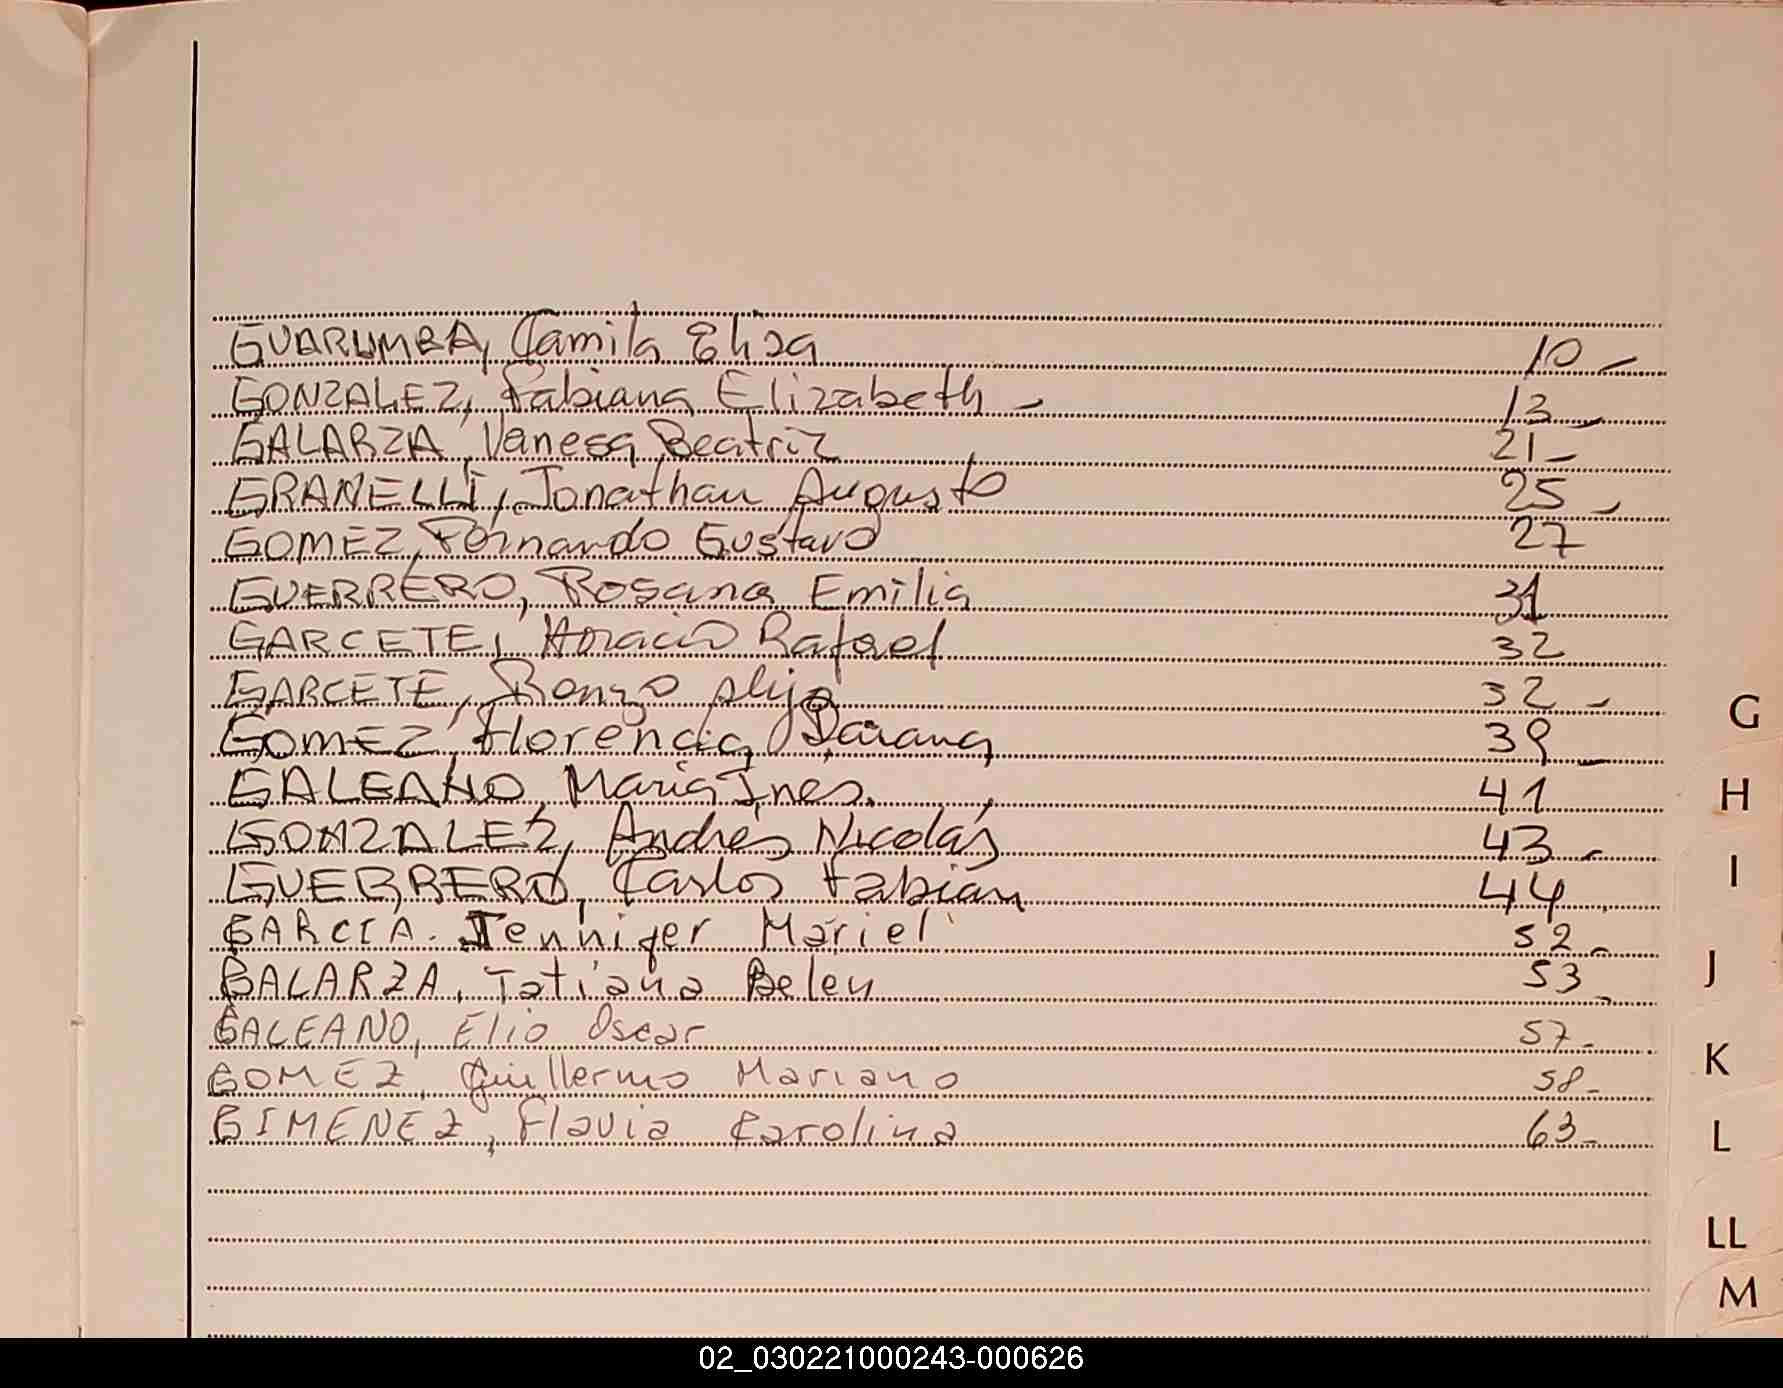 GUARUMBA, Camila Elisa 10 -
GONZALEZ, Fabiana Elizabeth - 13 -
GALARZA, Vanesa Beatriz 21 -
GRANELLI, Jonathan Augusto 25 -
GOMEZ, Fernando Gustavo 27
GUERRERO, Rosana Emilia 31
GARCETE, Horacio Rafael 32
GARCETE, Renzo 32 -
GOMEZ, Florencia Daiana 39 -
GALEANO, Maria Ines. 41
GONZALEZ, Andrés Nicolás 43 -
GUERRERO, Carlos Fabián 44
GARCIA. Jennifer Mariel 52 -
GALARZA, Tatiana Belen 53 -
GALEANO, Elio Oscar 57 -
GOMEZ, Guillermo Mariano 58 -
GIMENEZ, Flavia Carolina 63 -
G
H
I
J
K
L
LL
M
02_030221000243-000626